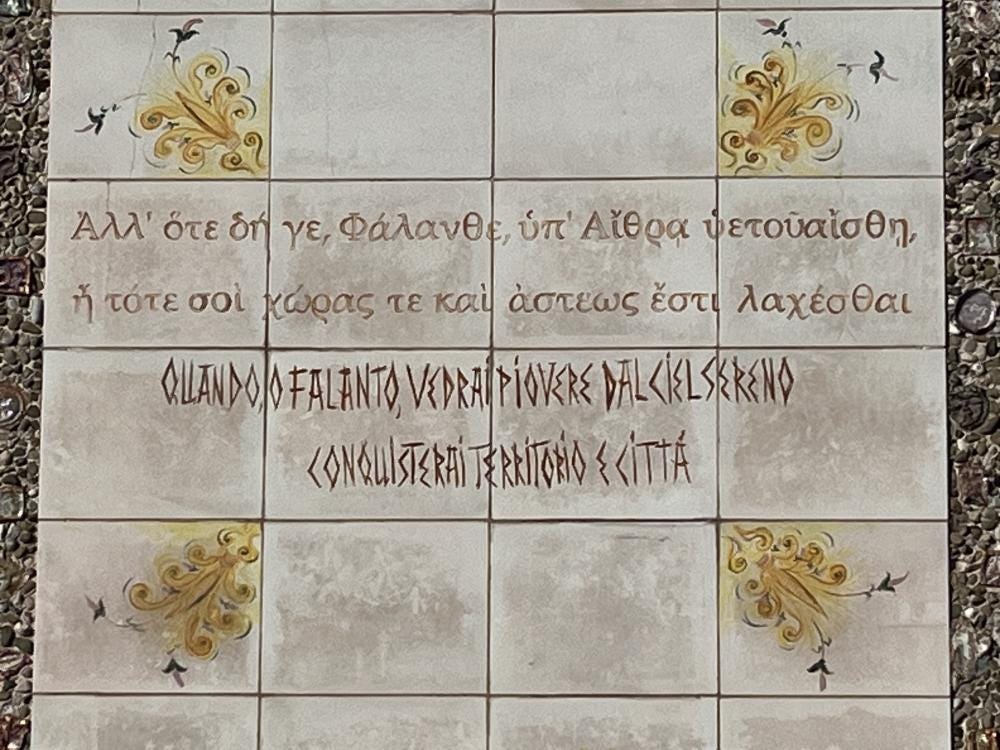 Ἀλλ' ὅτε δή γε, Φάλανθε, ὑπ' Αἴθρᾳ ὑετοῦαἴσθῃ,
ἤ τότε σοὶ χώρας τε καὶ ἀστεως ἔστι λαχέσθαι
QUANDO, O FALANTO, VEDRAI PIOVERE DAL CIEL SERENO
CONQUISTERAI TERRITORIO E CITTÀ